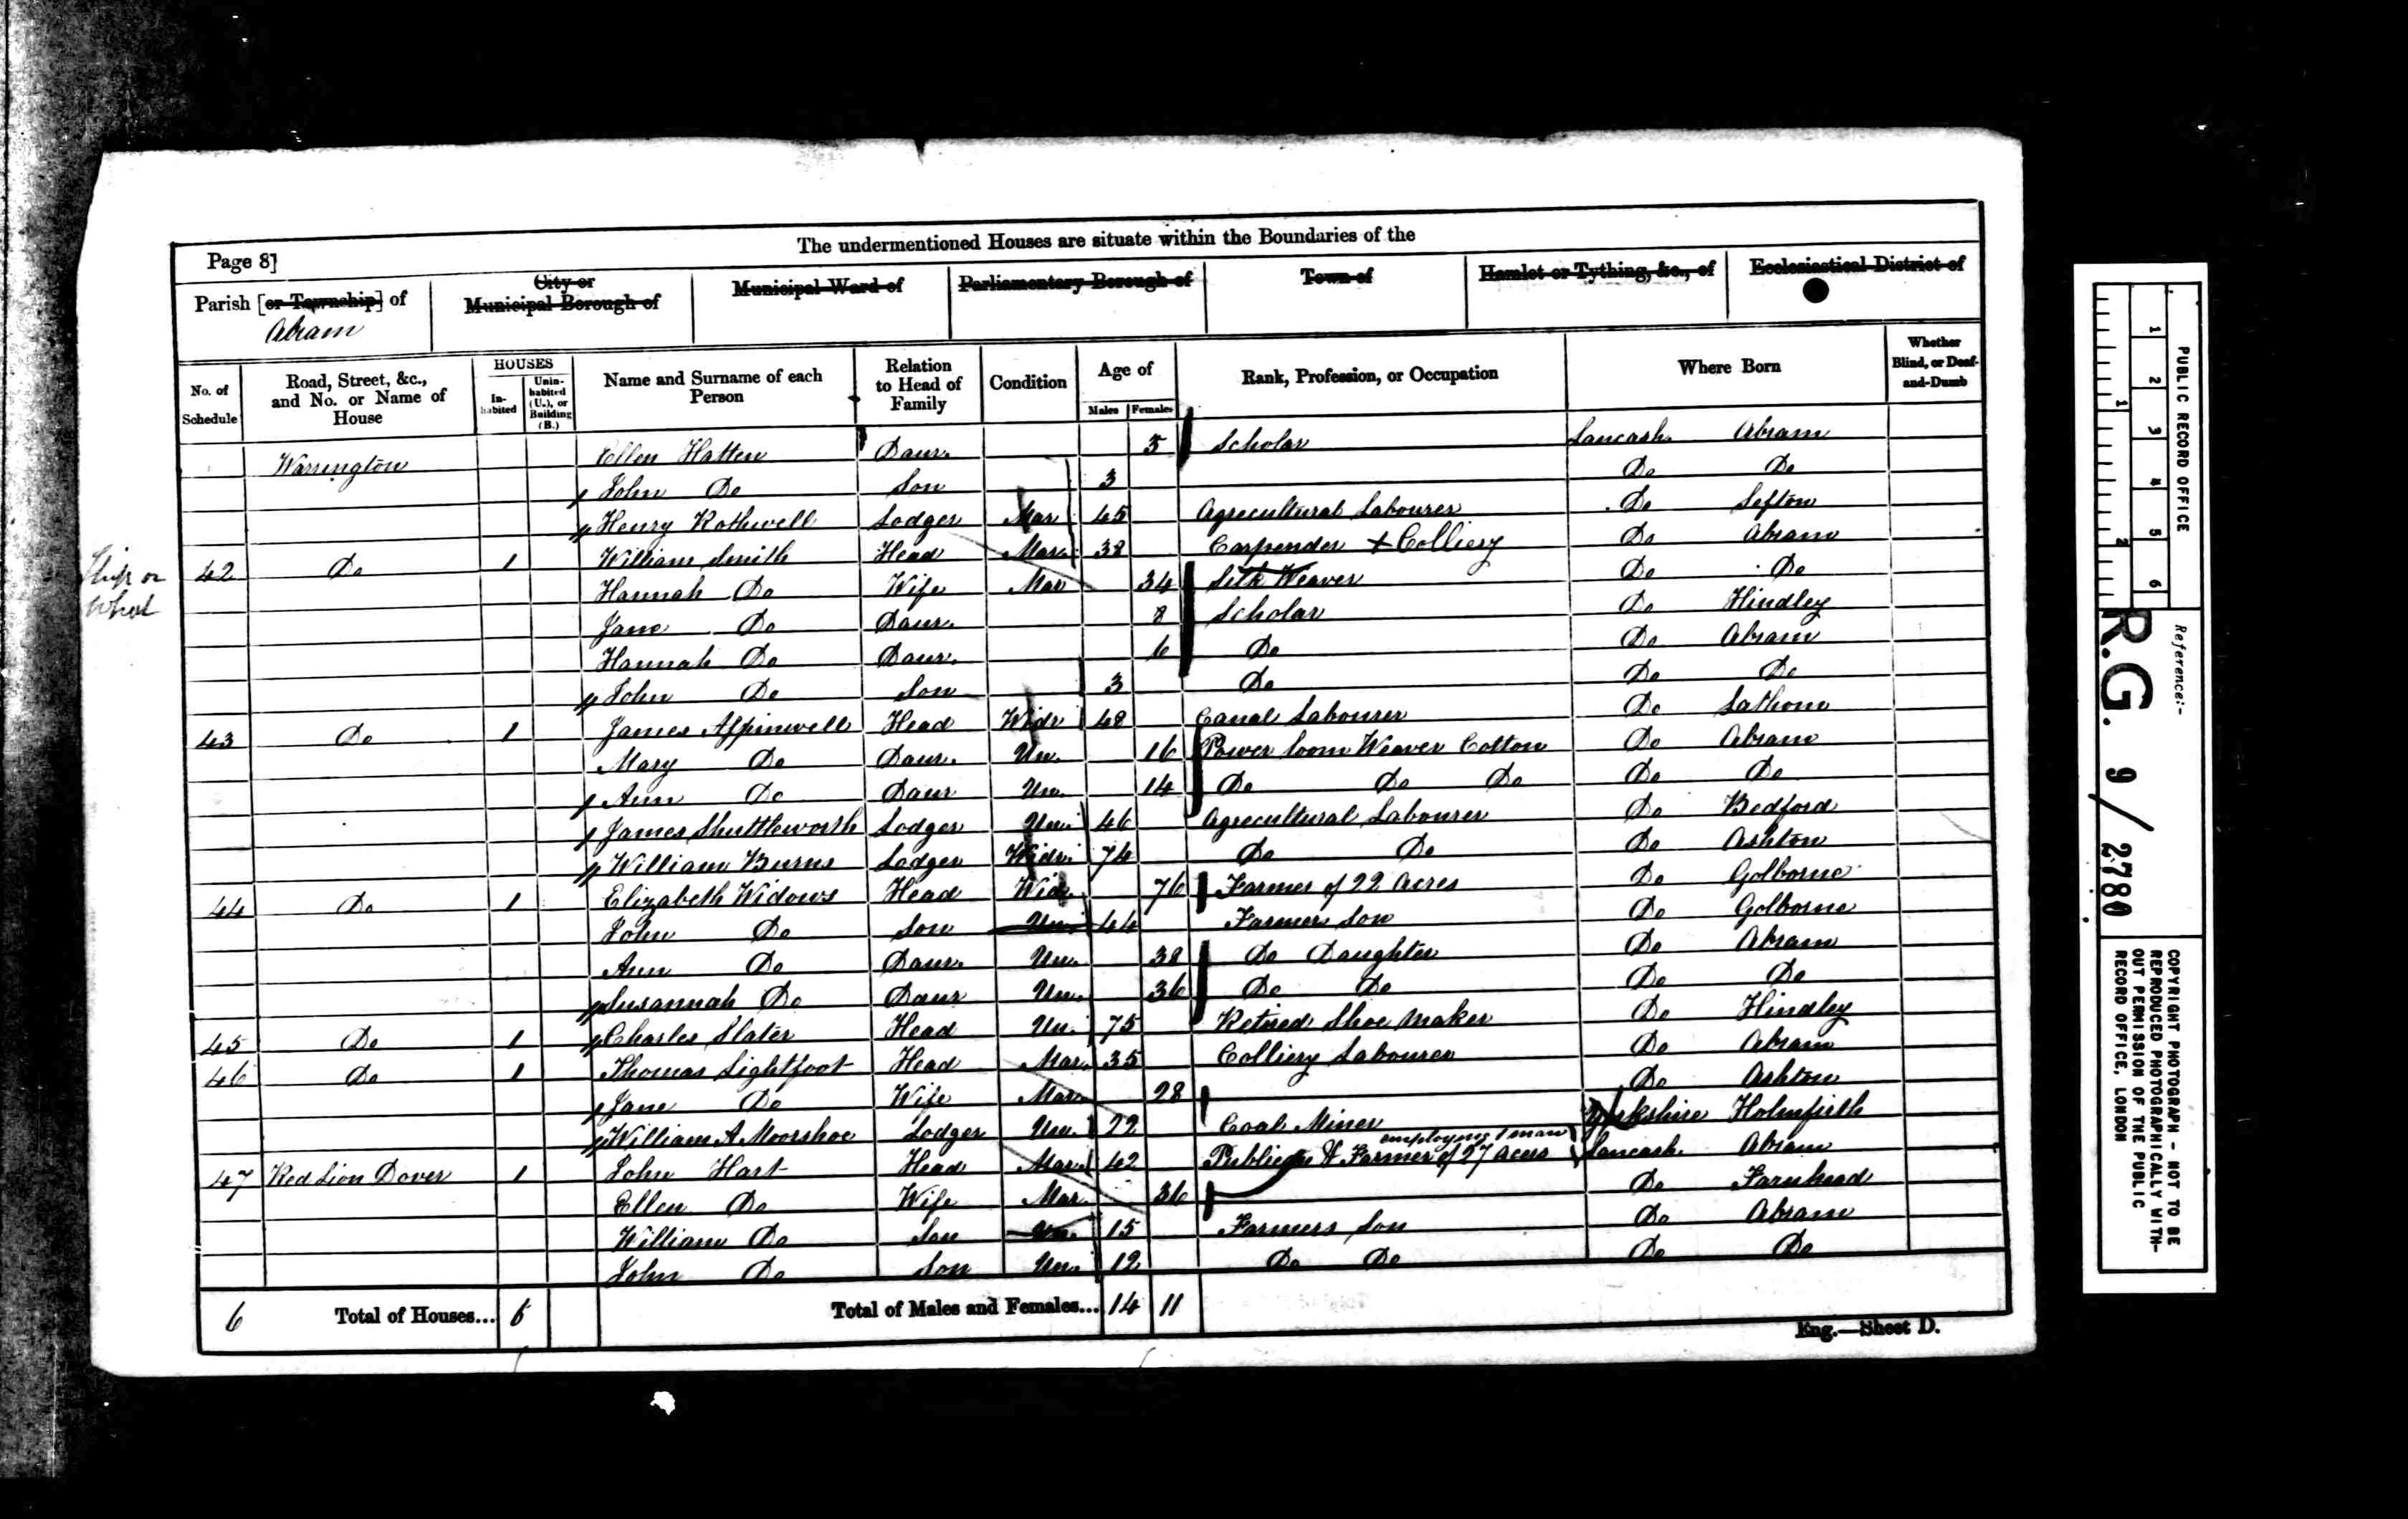 The undermentioned Houses are situate within the Boundaries of the
Page 8]
Parish [or Township] of
Abram
City or
Municipal Borough of
Municipal Ward of
Parliamentary Borough of
Town of
Hamlet or Tything, &c., of
Ecclesiastical District of
No. of
Schedule
Road, Street, &c.,
and No. or Name of
House
HOUSES
In-
habited
Unin-
habited
(U.), or
Building
(B.)
Name and Surname of each
Person
Relation
to Head of
Family
Condition
Age of
Males Females
Rank, Profession, or Occupation
Where Born
Whether
Blind, or Deaf-
and-Dumb
Warrington Ellen Hatten Daur. 5 Scholar Lancash. Abram
John Do Son 3 Do Do
Henry Rothwell Lodger Mar 45 Agrecultural Labourer Do Sefton
Ship or
What
42 Do 1 William Smith Head Mar. 38 Carpender + Colliery Do Abram
Hannah Do Wife Mar 34 Silk Weaver Do Do
Jane Do Daur. 8 Scholar Do Hindley
Hannah Do Daur. 6 Do Do Abram
John Do Son 3 Do Do Do
43 Do 1 James Aspinwell Head Widr 48 Canal Labourer Do Lathom
Mary Do Daur. Un. 16 Power Loom Weaver Cotton Do Abram
Ann Do Daur Un. 14 Do Do Do Do Do
James Shuttleworth Lodger Un. 46 Agrecultural Labourer Do Bedford
William Burns Lodger Widr. 74 Do Do Do Ashton
44 Do 1 Elizabeth Widows Head Wid. 76 Farmer of 22 Acres Do Golborne
John Do Son Un. 44 Farmers Son Do Golborne
Ann Do Daur. Un. 38 Do Daughter Do Abram
Susannah Do Daur Un. 36 Do Do Do Do
45 Do 1 Charles Slater Head Un. 75 Retired Shoe Maker Do Hindley
46 Do 1 Thomas Lightfoot Head Mar. 35 Colliery Labourer Do Abram
Jane Do Wife Mar. 28 Do Ashton
William A Moorshoe Lodger Un. 22 Coal Miner Yorkshire Holmfirth
employing 1 man
47 Red Lion Dover 1 John Hart Head Mar. 42 Publican & Farmer of 27 Acres Lancash. Abram
Ellen Do Wife Mar. 36 Do Farnhead
William Do Son Un. 15 Farmers Son Do Abram
John Do Son Un. 12 Do Do Do Do
6 Total of Houses... 6 Total of Males and Females... 14 11
Eng.—Sheet D.
1 2 3 4 5 6
1 2
PUBLIC RECORD OFFICE
Reference:-
R.G. 9/2780
COPYRIGHT PHOTOGRAPH - NOT TO BE
REPRODUCED PHOTOGRAPHICALLY WITH-
OUT PERMISSION OF THE PUBLIC
RECORD OFFICE, LONDON